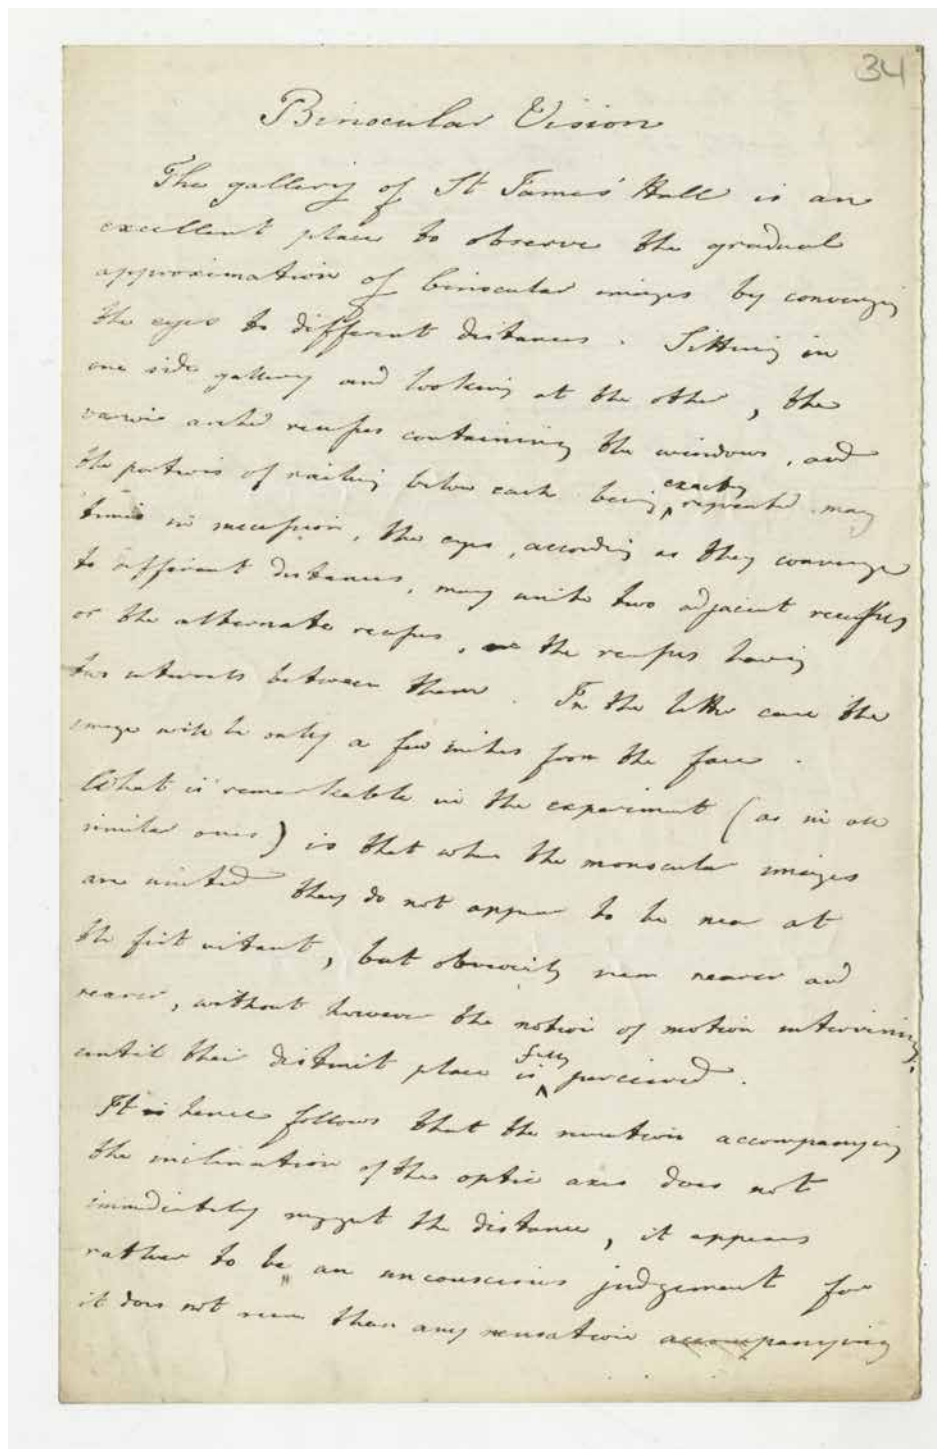 34
Binocular Vision
The gallery of St James' Hall is an
excellent place to observe the gradual
approximation of binocular images by converging
the eyes to different distances. Sitting in
one side gallery and looking at the other, the
various arched recesses containing the windows, and
the portions of railing below each being exactly repeated many
times in succession, the eyes, according as they converge
to different distances, may unite two adjacent recesses
or the alternate recesses, or the recesses having
two intervals between them. In the latter case the
image will be only a few inches from the face.
What is remarkable in the experiment (as in all
similar ones) is that when the monocular images
are united they do not appear to be near at
the first instant, but obviously seem nearer and
nearer, without however the notion of motion intervening,
until their distinct place is fully perceived.
It is hence follows that the sensation accompanying
the inclination of the optic axes does not
immediately suggest the distance, it appears
rather to be an unconscious judgement for
it does not seem than any sensation accompanying